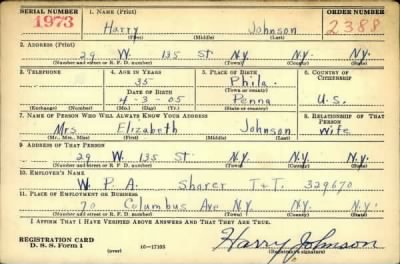 SERIAL NUMBER 1. NAME (Print) ORDER NUMBER
1973 Harry Johnson 2388
(First) (Middle) (Last)
2. ADDRESS (Print)
29 W. 135 St N.Y. N.Y. N.Y.
(Number and street or R. F. D. number) (Town) (County) (State)
3. TELEPHONE 4. AGE IN YEARS 5. PLACE OF BIRTH 6. COUNTRY OF CITIZENSHIP
35 Phila.
DATE OF BIRTH (Town or county)
4-3-05 Penna U.S.
(Exchange) (Number) (Mo.) (Day) (Yr.) (State or country)
7. NAME OF PERSON WHO WILL ALWAYS KNOW YOUR ADDRESS 8. RELATIONSHIP OF THAT PERSON
Mrs Elizabeth Johnson wife
(Mr., Mrs., Miss) (First) (Middle) (Last)
9. ADDRESS OF THAT PERSON
29 W. 135 St N.Y. N.Y. N.Y.
(Number and street or R. F. D. number) (Town) (County) (State)
10. EMPLOYER'S NAME
W. P. A. T&T. 329670
11. PLACE OF EMPLOYMENT OR BUSINESS
70 Columbus Ave N.Y. N.Y. N.Y.
(Number and street or R. F. D. number) (Town) (County) (State)
I AFFIRM THAT I HAVE VERIFIED ABOVE ANSWERS AND THAT THEY ARE TRUE.
REGISTRATION CARD
D. S. S. FORM 1 (over) 16-17105 Harry Johnson
(Registrant's signature)